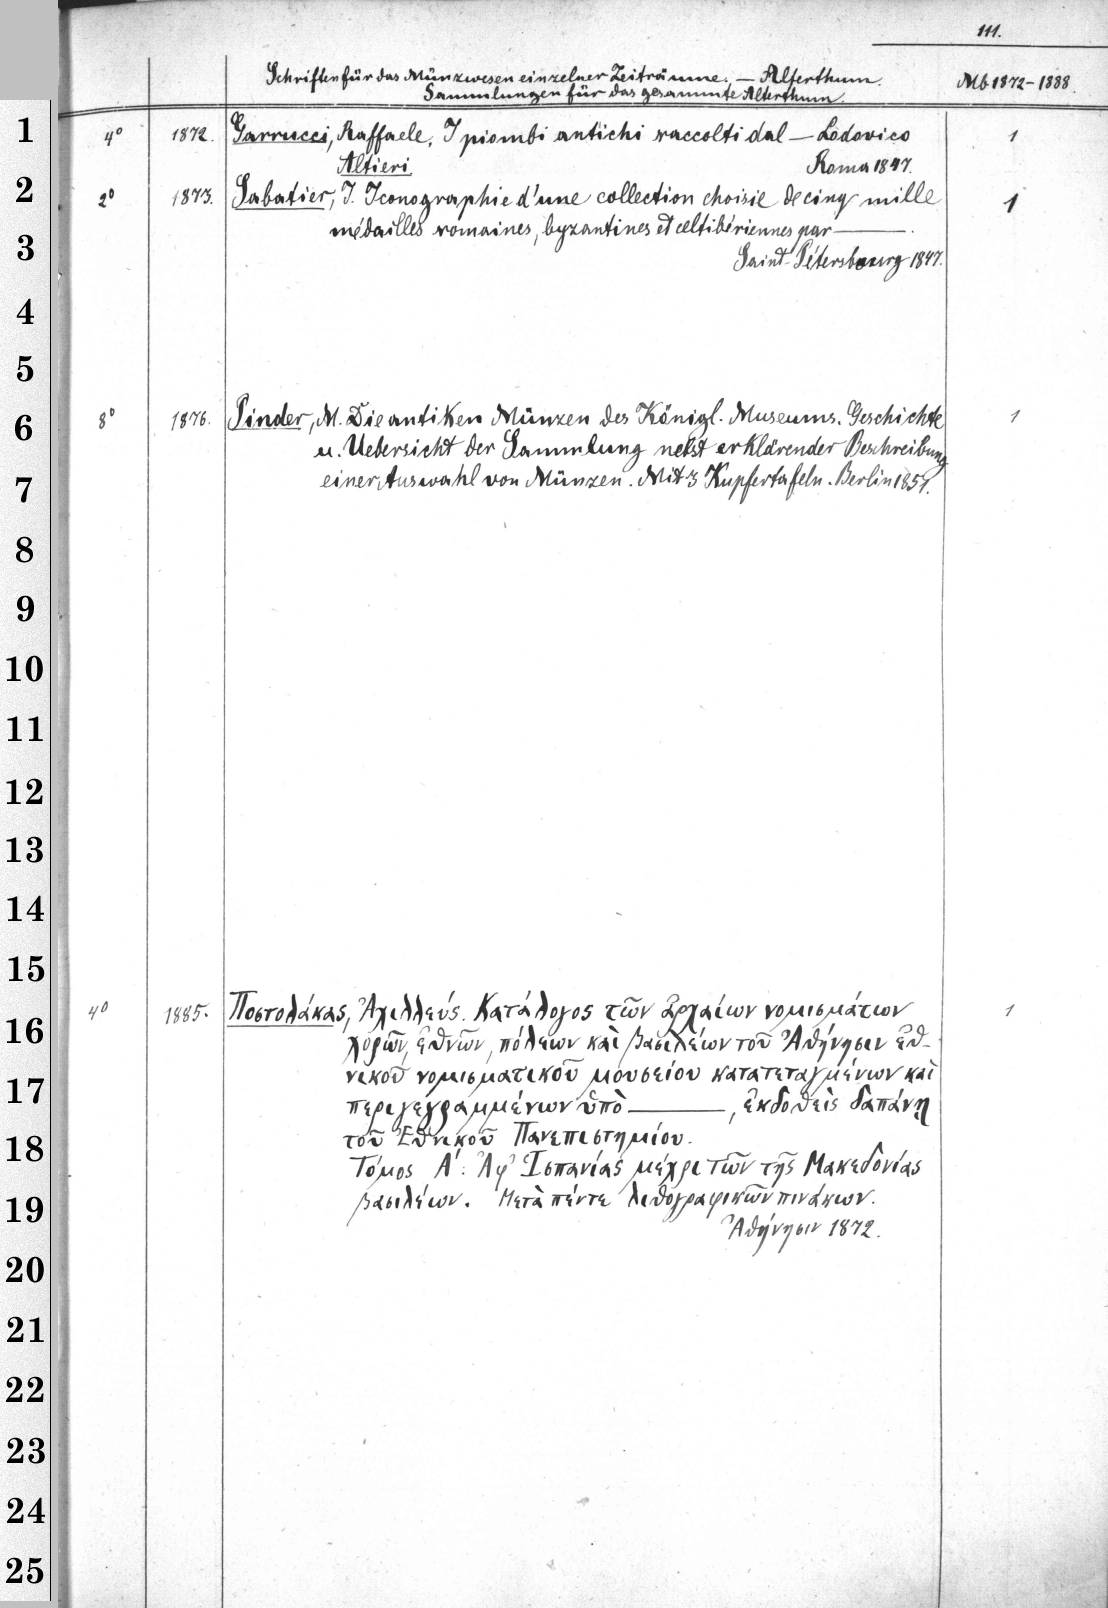 111.
Schriften für das Münzwesen einzelner Zeiträume. — Alterthum.
Sammlungen für das gesammte Alterthum.
Mb 1872–1888.
1 4° 1872. Garrucci, Raffaele. I piombi antichi raccolti dal — Lodovico 1
Altieri Roma 1847.
2 2° 1873. Sabatier, J. Iconographie d'une collection choisie de cinq mille 1
médailles romaines, byzantines et celtibériennes par ———.
3 Saint-Pétersbourg 1847.
4
5
6 8° 1876. Pinder, M. Die antiken Münzen des Königl. Museums. Geschichte 1
u. Uebersicht der Sammlung nebst erklärender Beschreibung
7 einer Auswahl von Münzen. Mit 3 Kupfertafeln. Berlin 1851.
8
9
10
11
12
13
14
15
16 4° 1885. Ποστολάκας, Ἀχιλλεύς. Κατάλογος τῶν ἀρχαίων νομισμάτων 1
χωρῶν, ἐθνῶν, πόλεων καὶ βασιλέων τοῦ Ἀθήνησιν ἐθ-
17 νικοῦ νομισματικοῦ μουσείου κατατεταγμένων καὶ
περιγεγραμμένων ὑπὸ ———, ἐκδοθεὶς δαπάνῃ
18 τοῦ Ἐθνικοῦ Πανεπιστημίου.
Τόμος Α΄: Ἀφ' Ἱσπανίας μέχρι τῶν τῆς Μακεδονίας
19 βασιλέων. Μετὰ πέντε λιθογραφικῶν πινάκων.
Ἀθήνησιν 1872.
20
21
22
23
24
25